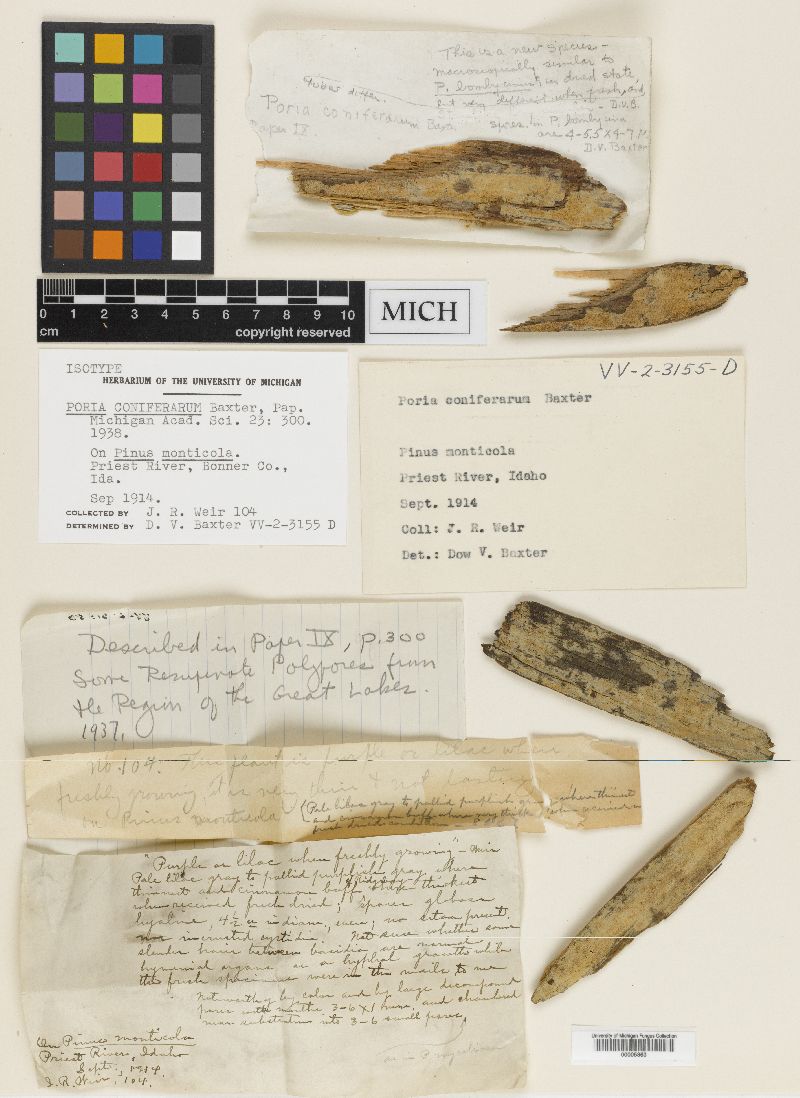 This is a new species –
macroscopically similar to
P. bombycina in dried state,
but very different when fresh, and
– D.V.B.
Tubes differ.
Poria coniferarum Baxt.
Paper IX
spores in P. bombycina
are 4-5.5 X 4-7 µ
D. V. Baxter
0 1 2 3 4 5 6 7 8 9 10
cm
copyright reserved
MICH
ISOTYPE
HERBARIUM OF THE UNIVERSITY OF MICHIGAN
PORIA CONIFERARUM Baxter, Pap.
Michigan Acad. Sci. 23: 300.
1938.
On Pinus monticola.
Priest River, Bonner Co.,
Ida.
Sep 1914.
COLLECTED BY J. R. Weir 104
DETERMINED BY D. V. Baxter VV-2-3155 D
VV-2-3155-D
Poria coniferarum Baxter
Pinus monticola
Priest River, Idaho
Sept. 1914
Coll: J. R. Weir
Det.: Dow V. Baxter
Described in Paper IX, p. 300
Some Resupinate Polypores from
the Region of the Great Lakes.
1937.
No. 104. This plant is purple or lilac when
freshly growing, it is very thin & not
on Pinus monticola
(Pale lilac gray to pallid purplish gray where thinnest
and cinnamon buff where very thick when received
fresh dried
"Purple or lilac when freshly growing" – Weir
Pale lilac gray to pallid purplish gray where
thinnest and cinnamon buff where thickest
when received fresh dried; spores globose
hyaline, 4½ in diam., even; no setae present.
nor incrusted cystidia. Not sure whether some
slender hairs between basidia are normal
hymenial organs or a hyphal growth while
the fresh specimens were in the mails to me
Noteworthy by color and by large decompound
pores with mouths 3-6 X 1 mm. and chambered
near substratum into 3-6 small pores.
On Pinus monticola
Priest River, Idaho
Sept., 1914.
J. R. Weir, 104.
University of Michigan Fungus Collection